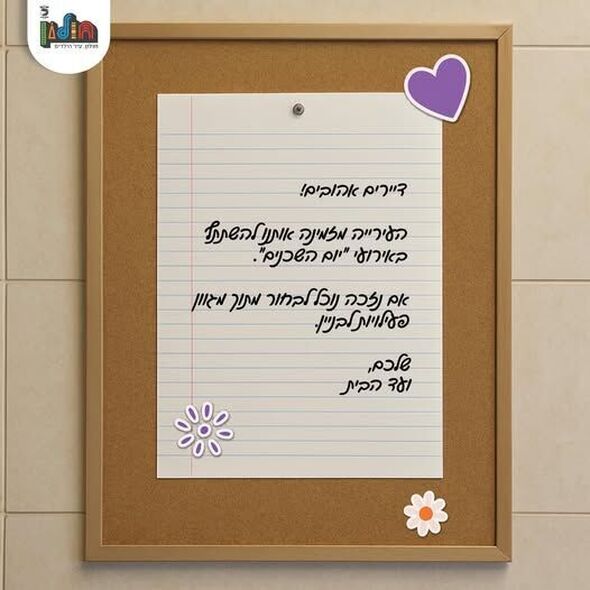 חולון
חולון. עיר הילדים
דיירים אהובים!
העירייה מזמינה אותנו להשתתף
באירועי "יום השכנים".
אם נזכה נוכל לבחור מתוך מגוון
פעילויות לבניין.
שלכם,
ועד הבית